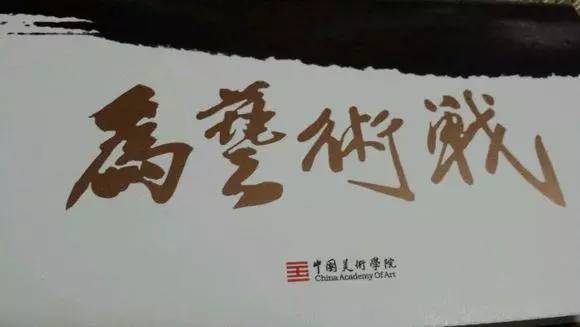 為藝術戰
中国美術學院
China Academy Of Art